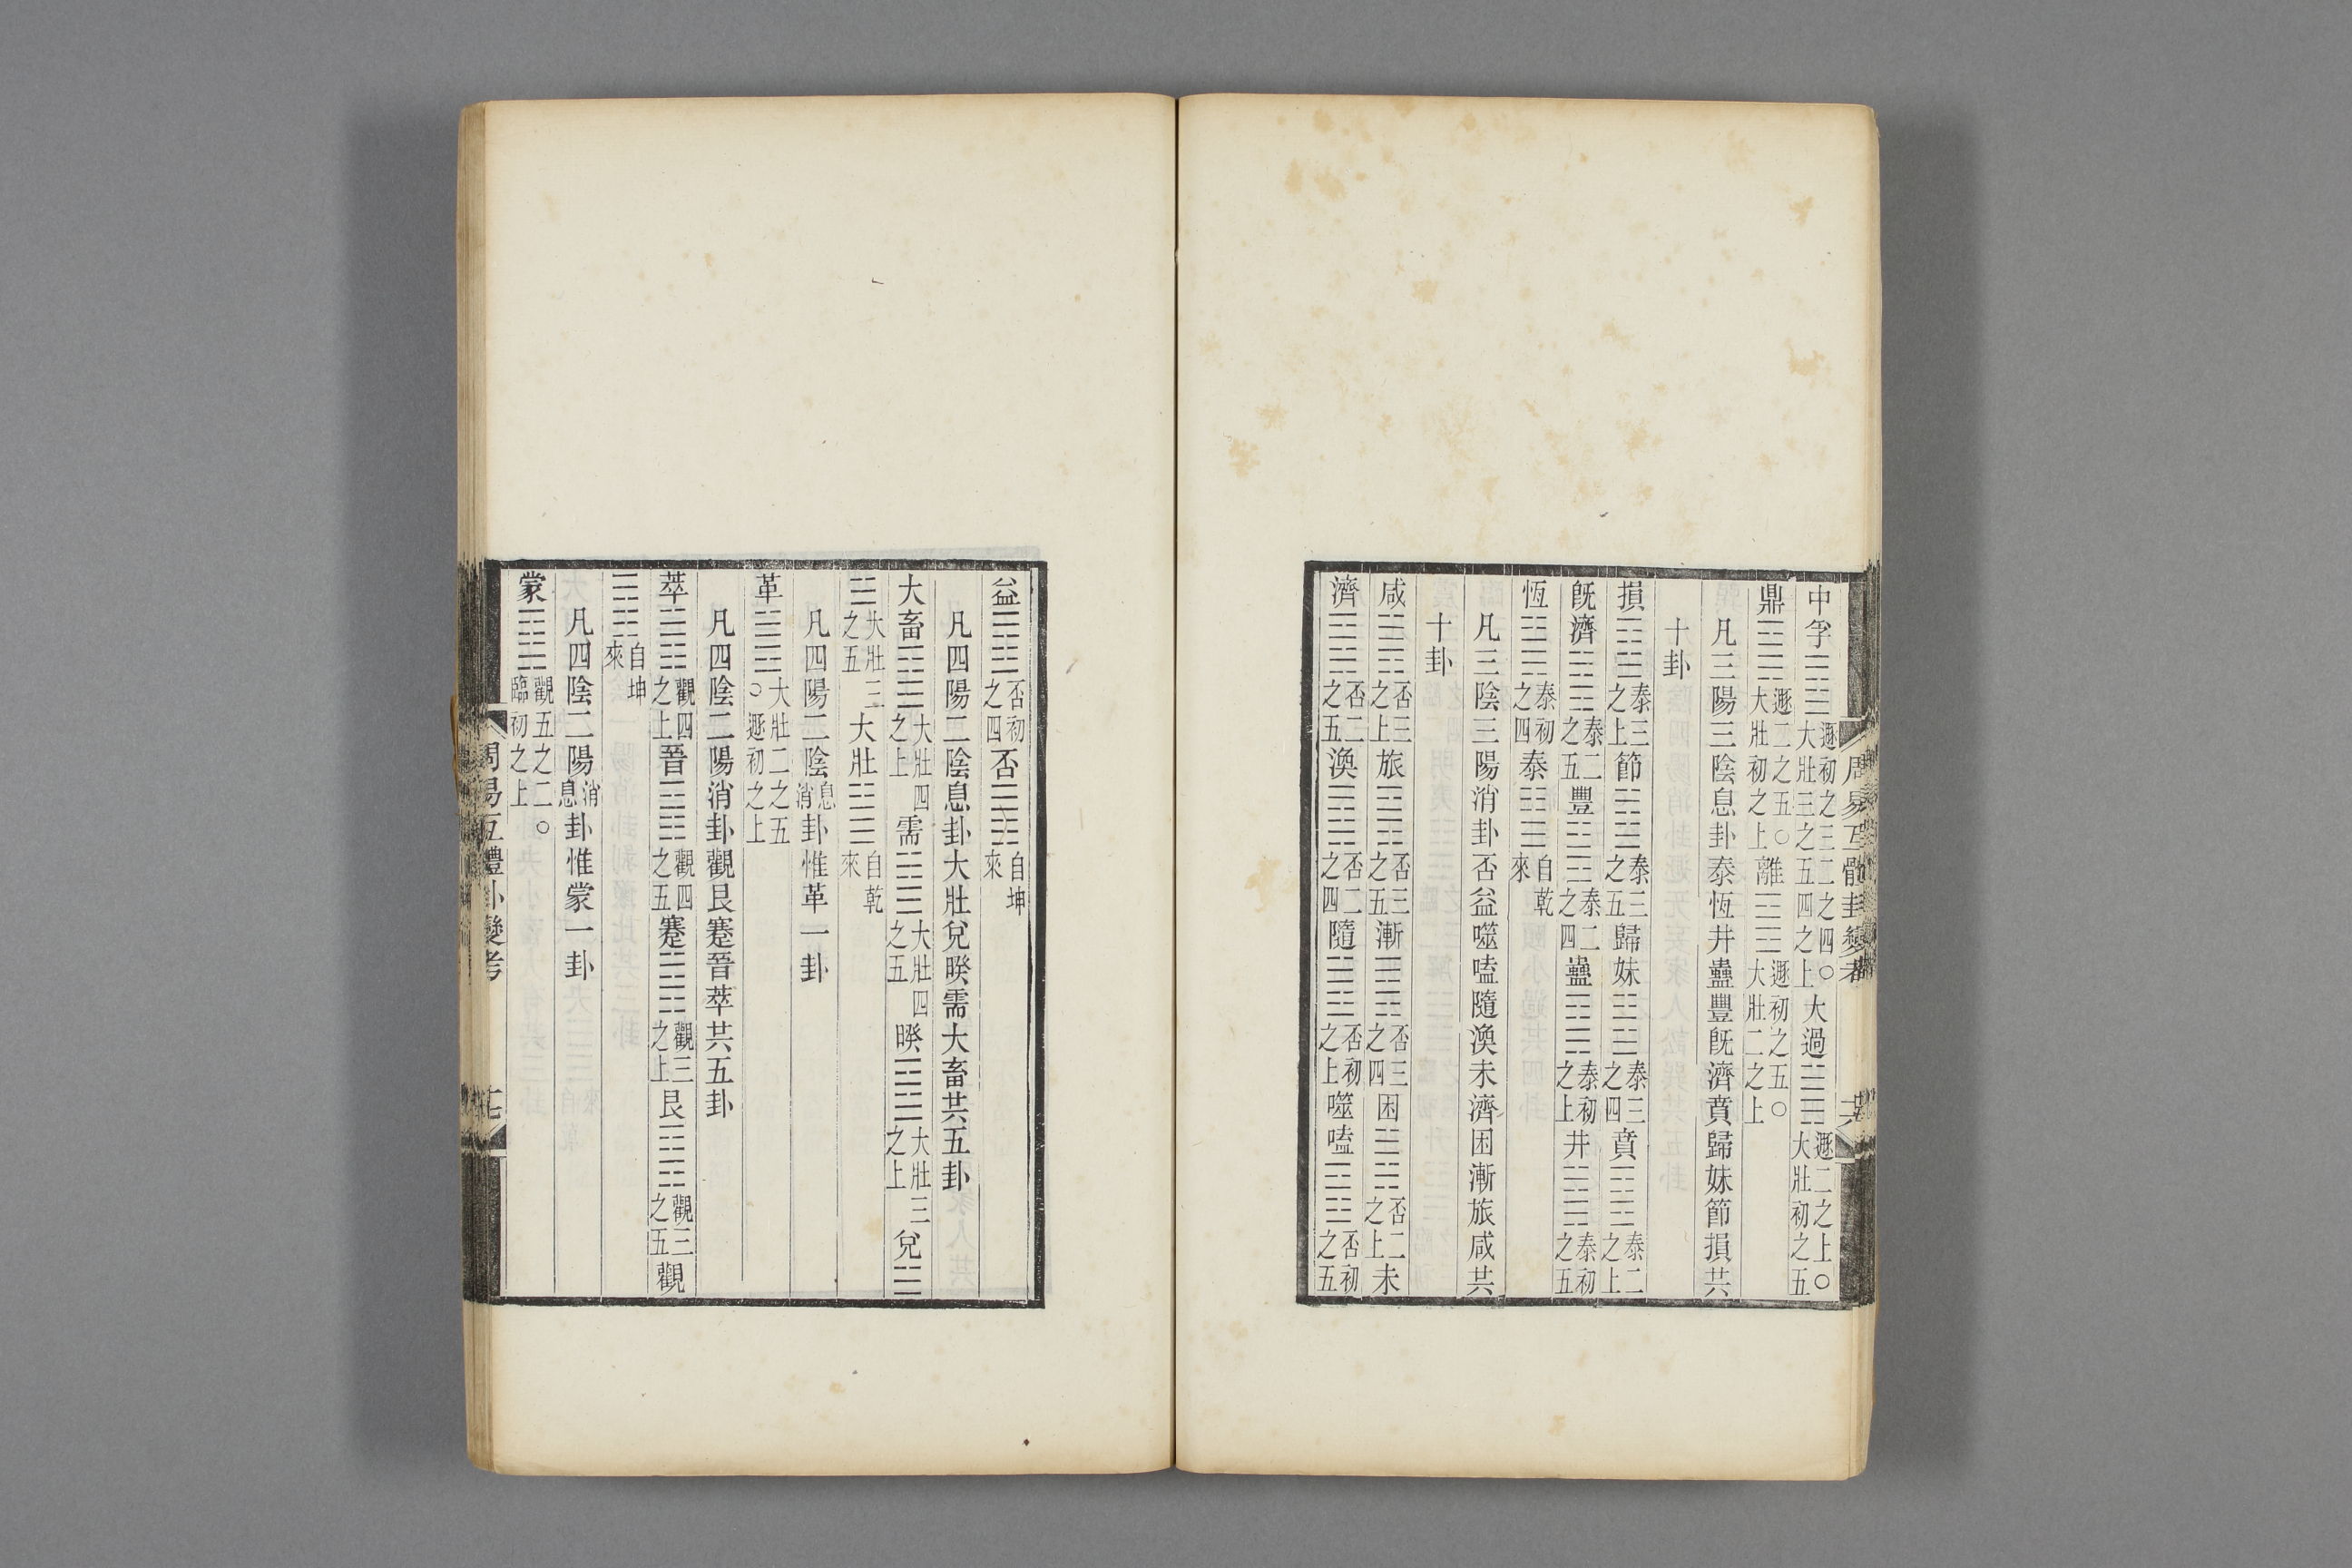 周易互體卦變考 廿六
中孚䷼遯初之三二之四○大壯三之五四之上大過䷛遯二之上○大壯初之五
鼎䷱遯二之五○大壯初之上離䷝遯初之五○大壯二之上
凡三陽三陰息卦泰恆井蠱豐旣濟賁歸妹節損共
十卦
損䷨泰三之上節䷻泰三之五歸妹䷵泰三之四賁䷕泰二之上
旣濟䷾泰二之五豐䷶泰二之四蠱䷑泰初之上井䷯泰初之五
恆䷟泰初之四泰䷊自乾來
凡三陰三陽消卦否益噬嗑隨渙未濟困漸旅咸共
十卦
咸䷞否三之上旅䷷否三之五漸䷴否三之四困䷮否二之上未
濟䷿否二之五渙䷺否二之四隨䷐否初之上噬嗑䷔否初之五
益䷩否初之四否䷋自坤來
凡四陽二陰息卦大壯兌睽需大畜共五卦
大畜䷙大壯四之上需䷄大壯四之五睽䷥大壯三之上兌☱
☱大壯三之五大壯䷡自乾來
凡四陽二陰息消卦惟革一卦
革䷰大壯二之五○遯初之上
凡四陰二陽消卦觀艮蹇晉萃共五卦
萃䷬觀四之上晉䷢觀四之五蹇䷦觀三之上艮䷳觀三之五觀
䷓自坤來
凡四陰二陽消息卦惟蒙一卦
蒙䷃觀五之二○臨初之上
周易互體卦變考 廿七